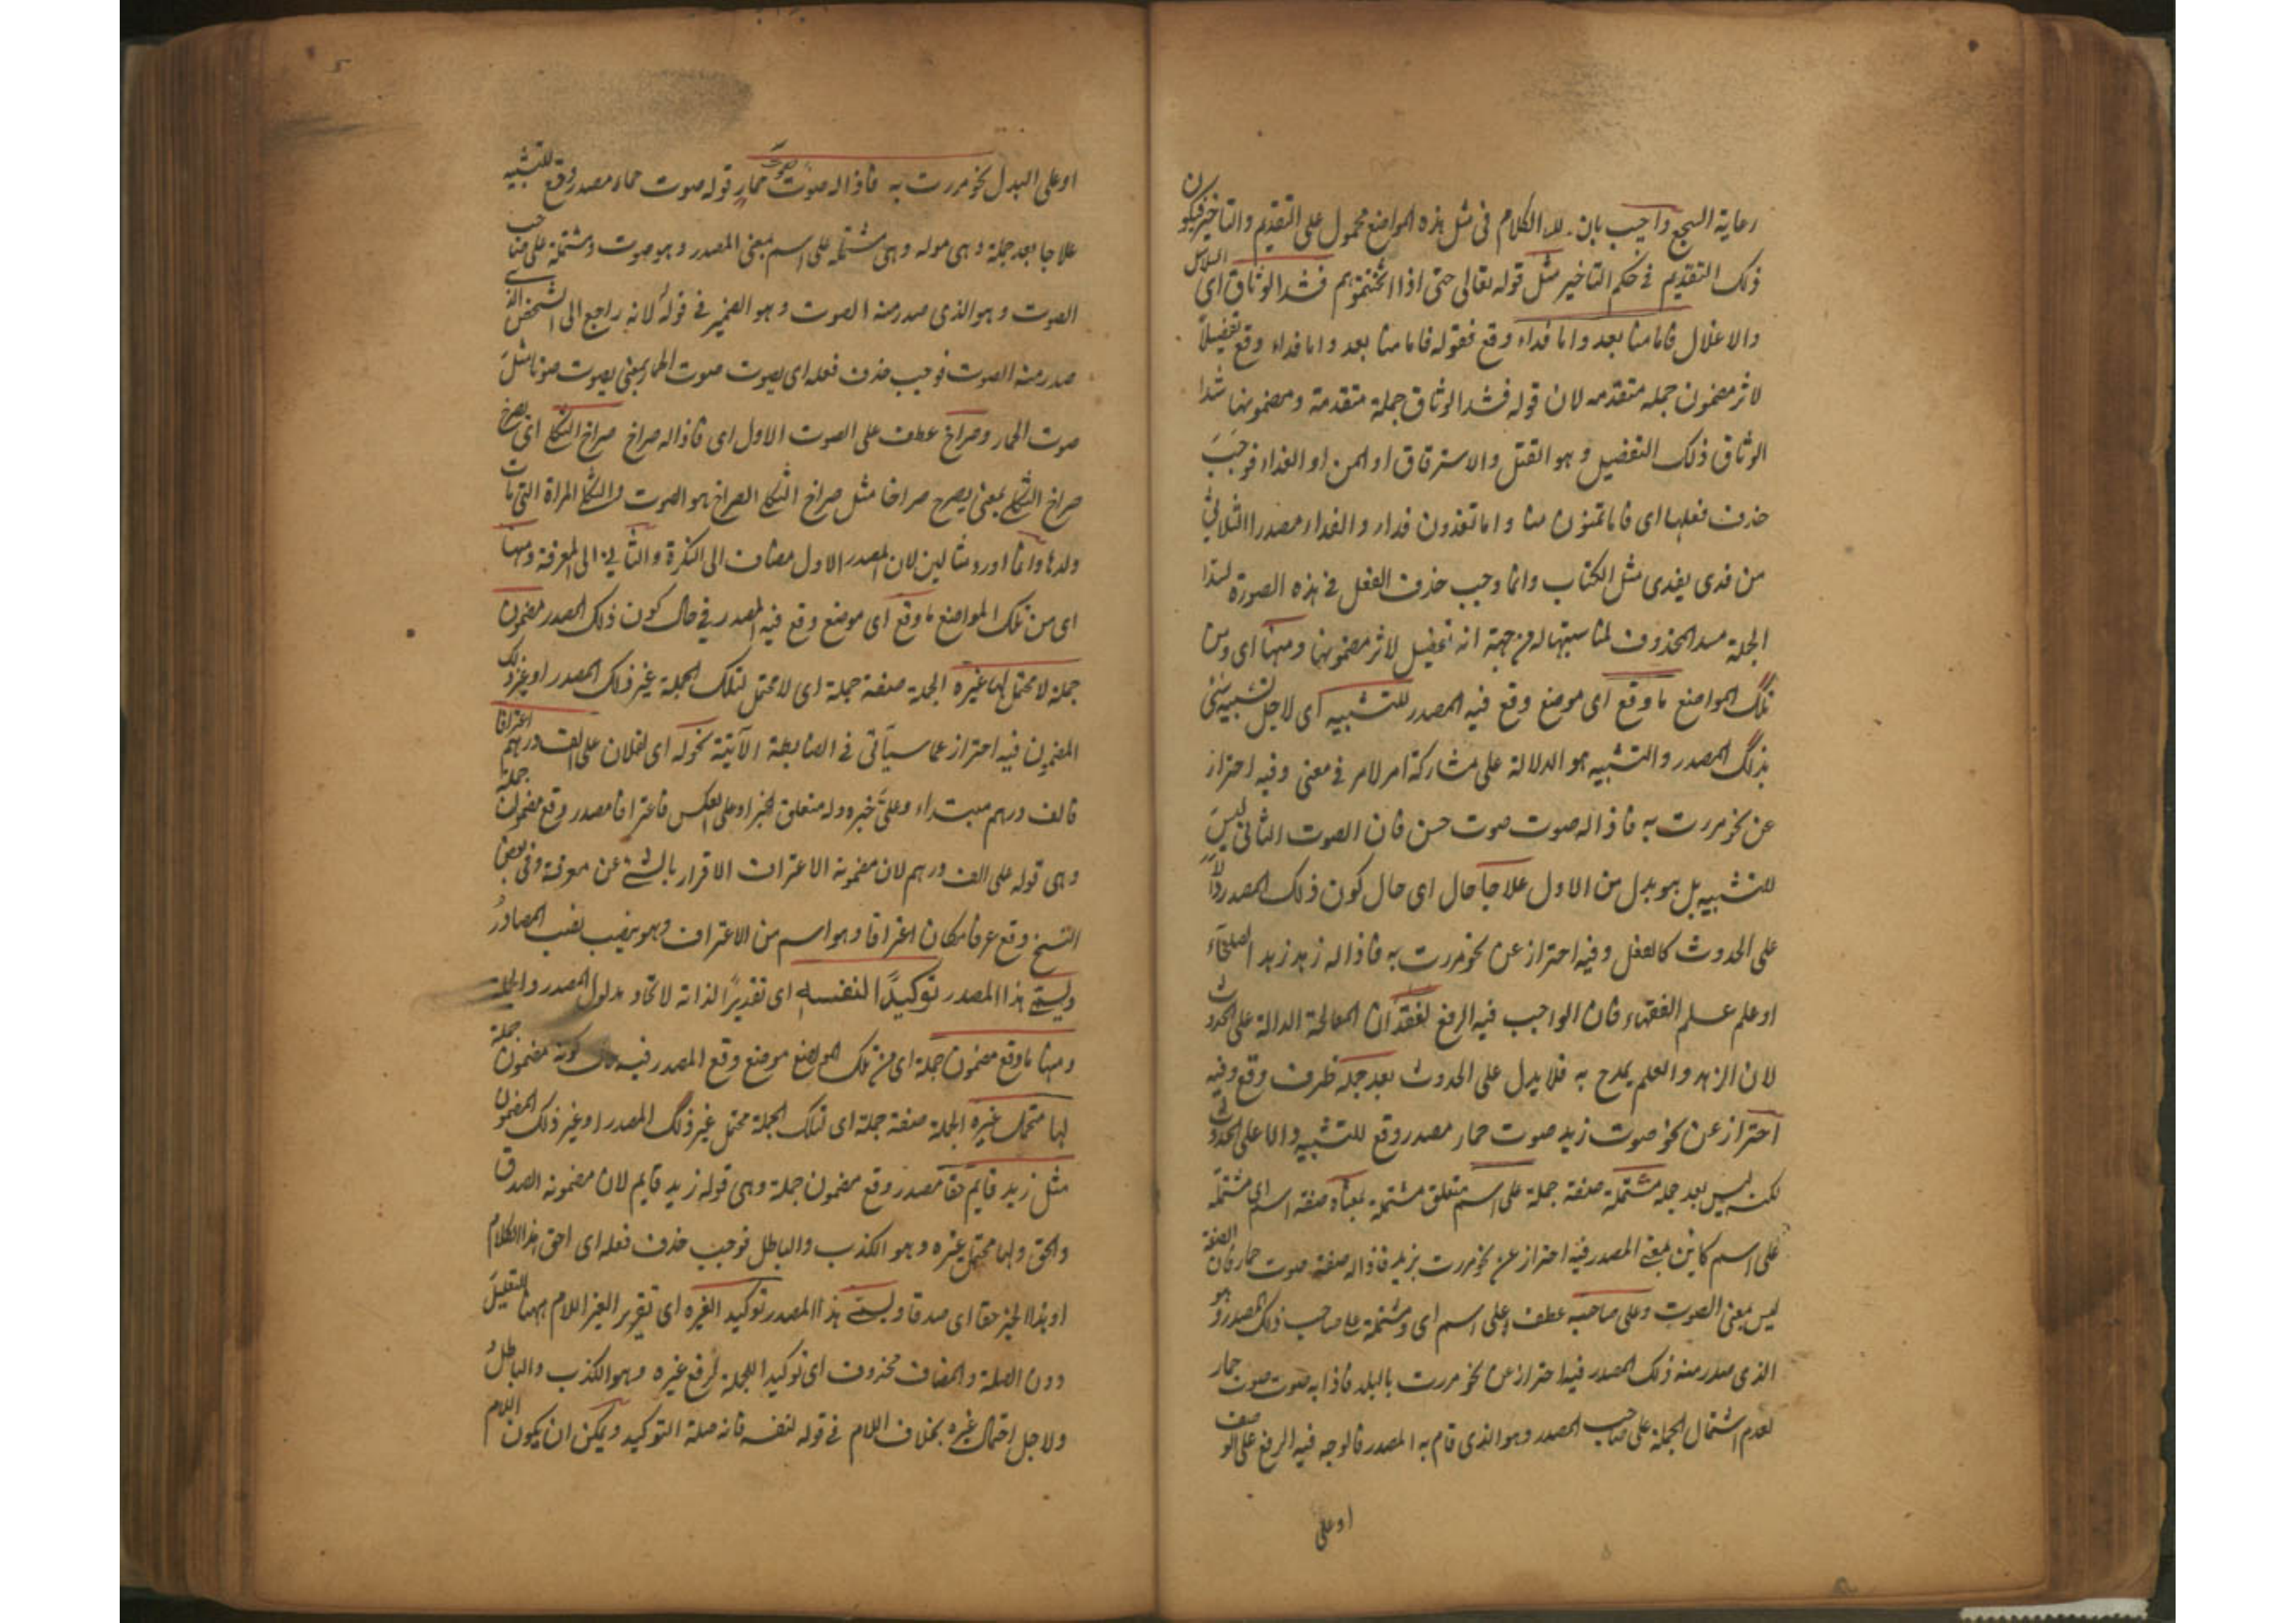 رعاية السجع واجيب بان الكلام فى مثل هذه المواضع محمول على التقديم والتاخير فيكون
ذلك التقديم فى حكم التاخير مثل قوله تعالى حتى اذا اثخنتموهم فشدوا الوثاق اى السلاسل
والاغلال فاما منا بعد واما فداء وقع فقوله فاما منا بعد واما فداء وقع تفصيلا
لاثر مضمون جملة متقدمه لان قوله فشدوا الوثاق جملة متقدمة ومضمونها شد
الوثاق ذلك التفضيل وهو القتل والاسترقاق او المن او الفداء فوجب
حذف فعلها اى فاما تمنون منا واما تفدون فداء والفداء مصدر الثلاثى
من فدى يفدى مثل الكتاب وانما وجب حذف الفعل فى هذه الصورة لسد
الجملة مسد المحذوف لمناسبتها له من جهة انه تفصيل لاثر مضمونها ومنها اى ومن
تلك المواضع ما وقع اى موضع وقع فيه المصدر للتشبيه اى لاجل تشبيه شئ
بذلك المصدر والتشبيه هو الدلالة على مشاركة امر لامر فى معنى وفيه احتراز
عن نحو مررت به فاذا له صوت صوت حسن فان الصوت الثانى ليس
للتشبيه بل هو بدل من الاول علاجا حال اى حال كون ذلك المصدر دالا
على الحدوث كالفعل وفيه احتراز عن نحو مررت به فاذا له زهد زهد الصلحاء
او علم علم الفقهاء فان الواجب فيه الرفع لفقدان المعالجة الدالة على الحدوث
لان الزهد والعلم يمدح به فلا يدل على الحدوث بعد جملة ظرف وقع وفيه
احتراز عن نحو صوت زيد صوت حمار مصدر وقع للتشبيه والا على الحدوث
لكنه ليس بعد جملة مشتملة صفة جملة على اسم متعلق مشتملة بمعناه صفة اسم اى مشتملة
على اسم كاين بمعنى المصدر فيه احتراز عن نحو مررت بزيد فاذا له صفة صوت حمار فان الصفة
ليس بمعنى الصوت وعلى صاحبه عطف على اسم اى ومشتملة على صاحب ذلك المصدر وهو
الذى صدر منه ذلك المصدر فيه احتراز عن نحو مررت بالبلد فاذا به صوت صوت حمار
لعدم اشتمال الجملة على صاحب المصدر وهو الذى قام به المصدر فالوجه فيه الرفع على الوصف
او على
او على البدل نحو مررت به فاذا له صوت صوت حمار قوله صوت حمار مصدر وقع للتشبيه
علاجا بعد جملة وهى قوله له وهى مشتملة على اسم بمعنى المصدر وهو صوت ومشتملة على صاحب
الصوت وهو الذى صدر منه الصوت وهو الضمير فى قوله لانه راجع الى الشخص الذى
صدر منه الصوت فوجب حذف فعله اى يصوت صوت الحمار بمعنى يصوت صوتا مثل
صوت الحمار وصراخ عطف على الصوت الاول اى فاذا له صراخ صراخ الثكلى اى يصرخ
صراخ الثكلى بمعنى يصرخ صراخا مثل صراخ الثكلى الصراخ هو الصوت والثكلى المراة التى مات
ولدها وانما اورد مثالين لان المصدر الاول مضاف الى النكرة والثانى الى المعرفة ومنها
اى من تلك المواضع ما وقع اى موضع وقع فيه المصدر فى حال كون ذلك المصدر مضمون
جملة لا محتمل لها غيره الجملة صفة جملة اى لا محتمل لتلك الجملة غير ذلك المصدر او غير ذلك
المضمون فيه احتراز عما سيأتى فى الضابطة الآتية نحو له اى لفلان على الف درهم اعترافا
فالف درهم مبتداء وعلى خبره وله متعلق لخبر او على العكس فاعترافا مصدر وقع مضمون جملة
وهى قوله على الف درهم لان مضمونه الاعتراف الاقرار بالشئ عن معرفة وفى بعض
النسخ وقع عرفا مكان اعترافا وهو اسم من الاعتراف وهو ينصب نصب المصادر
ويسمى هذا المصدر توكيدا لنفسه اى تقديرا لذاته لاتحاد مدلول المصدر والجملة
ومنها ما وقع مضمون جملة اى من تلك المواضع موضع وقع المصدر فيه حال كونه مضمون جملة
لها محتمل غيره الجملة صفة جملة اى لتلك الجملة محتمل غير ذلك المصدر او غير ذلك المضمون
مثل زيد قايم حقا مصدر وقع مضمون جملة وهى قوله زيد قايم لان مضمونه الصدق
والحق ولها محتمل غيره وهو الكذب والباطل فوجب حذف فعله اى احق هذا الكلام
او هذا الخبر حقا اى صدقا ويسمى هذا المصدر توكيد الغيره اى تقرير الغير اللام ههنا للتعليل
دون الصلة والمضاف محذوف اى توكيدا للجملة لرفع غيره وهو الكذب والباطل
ولاجل احتمال غيره بخلاف اللام فى قوله لنفسه فانه صلة التوكيد ويمكن ان يكون اللام